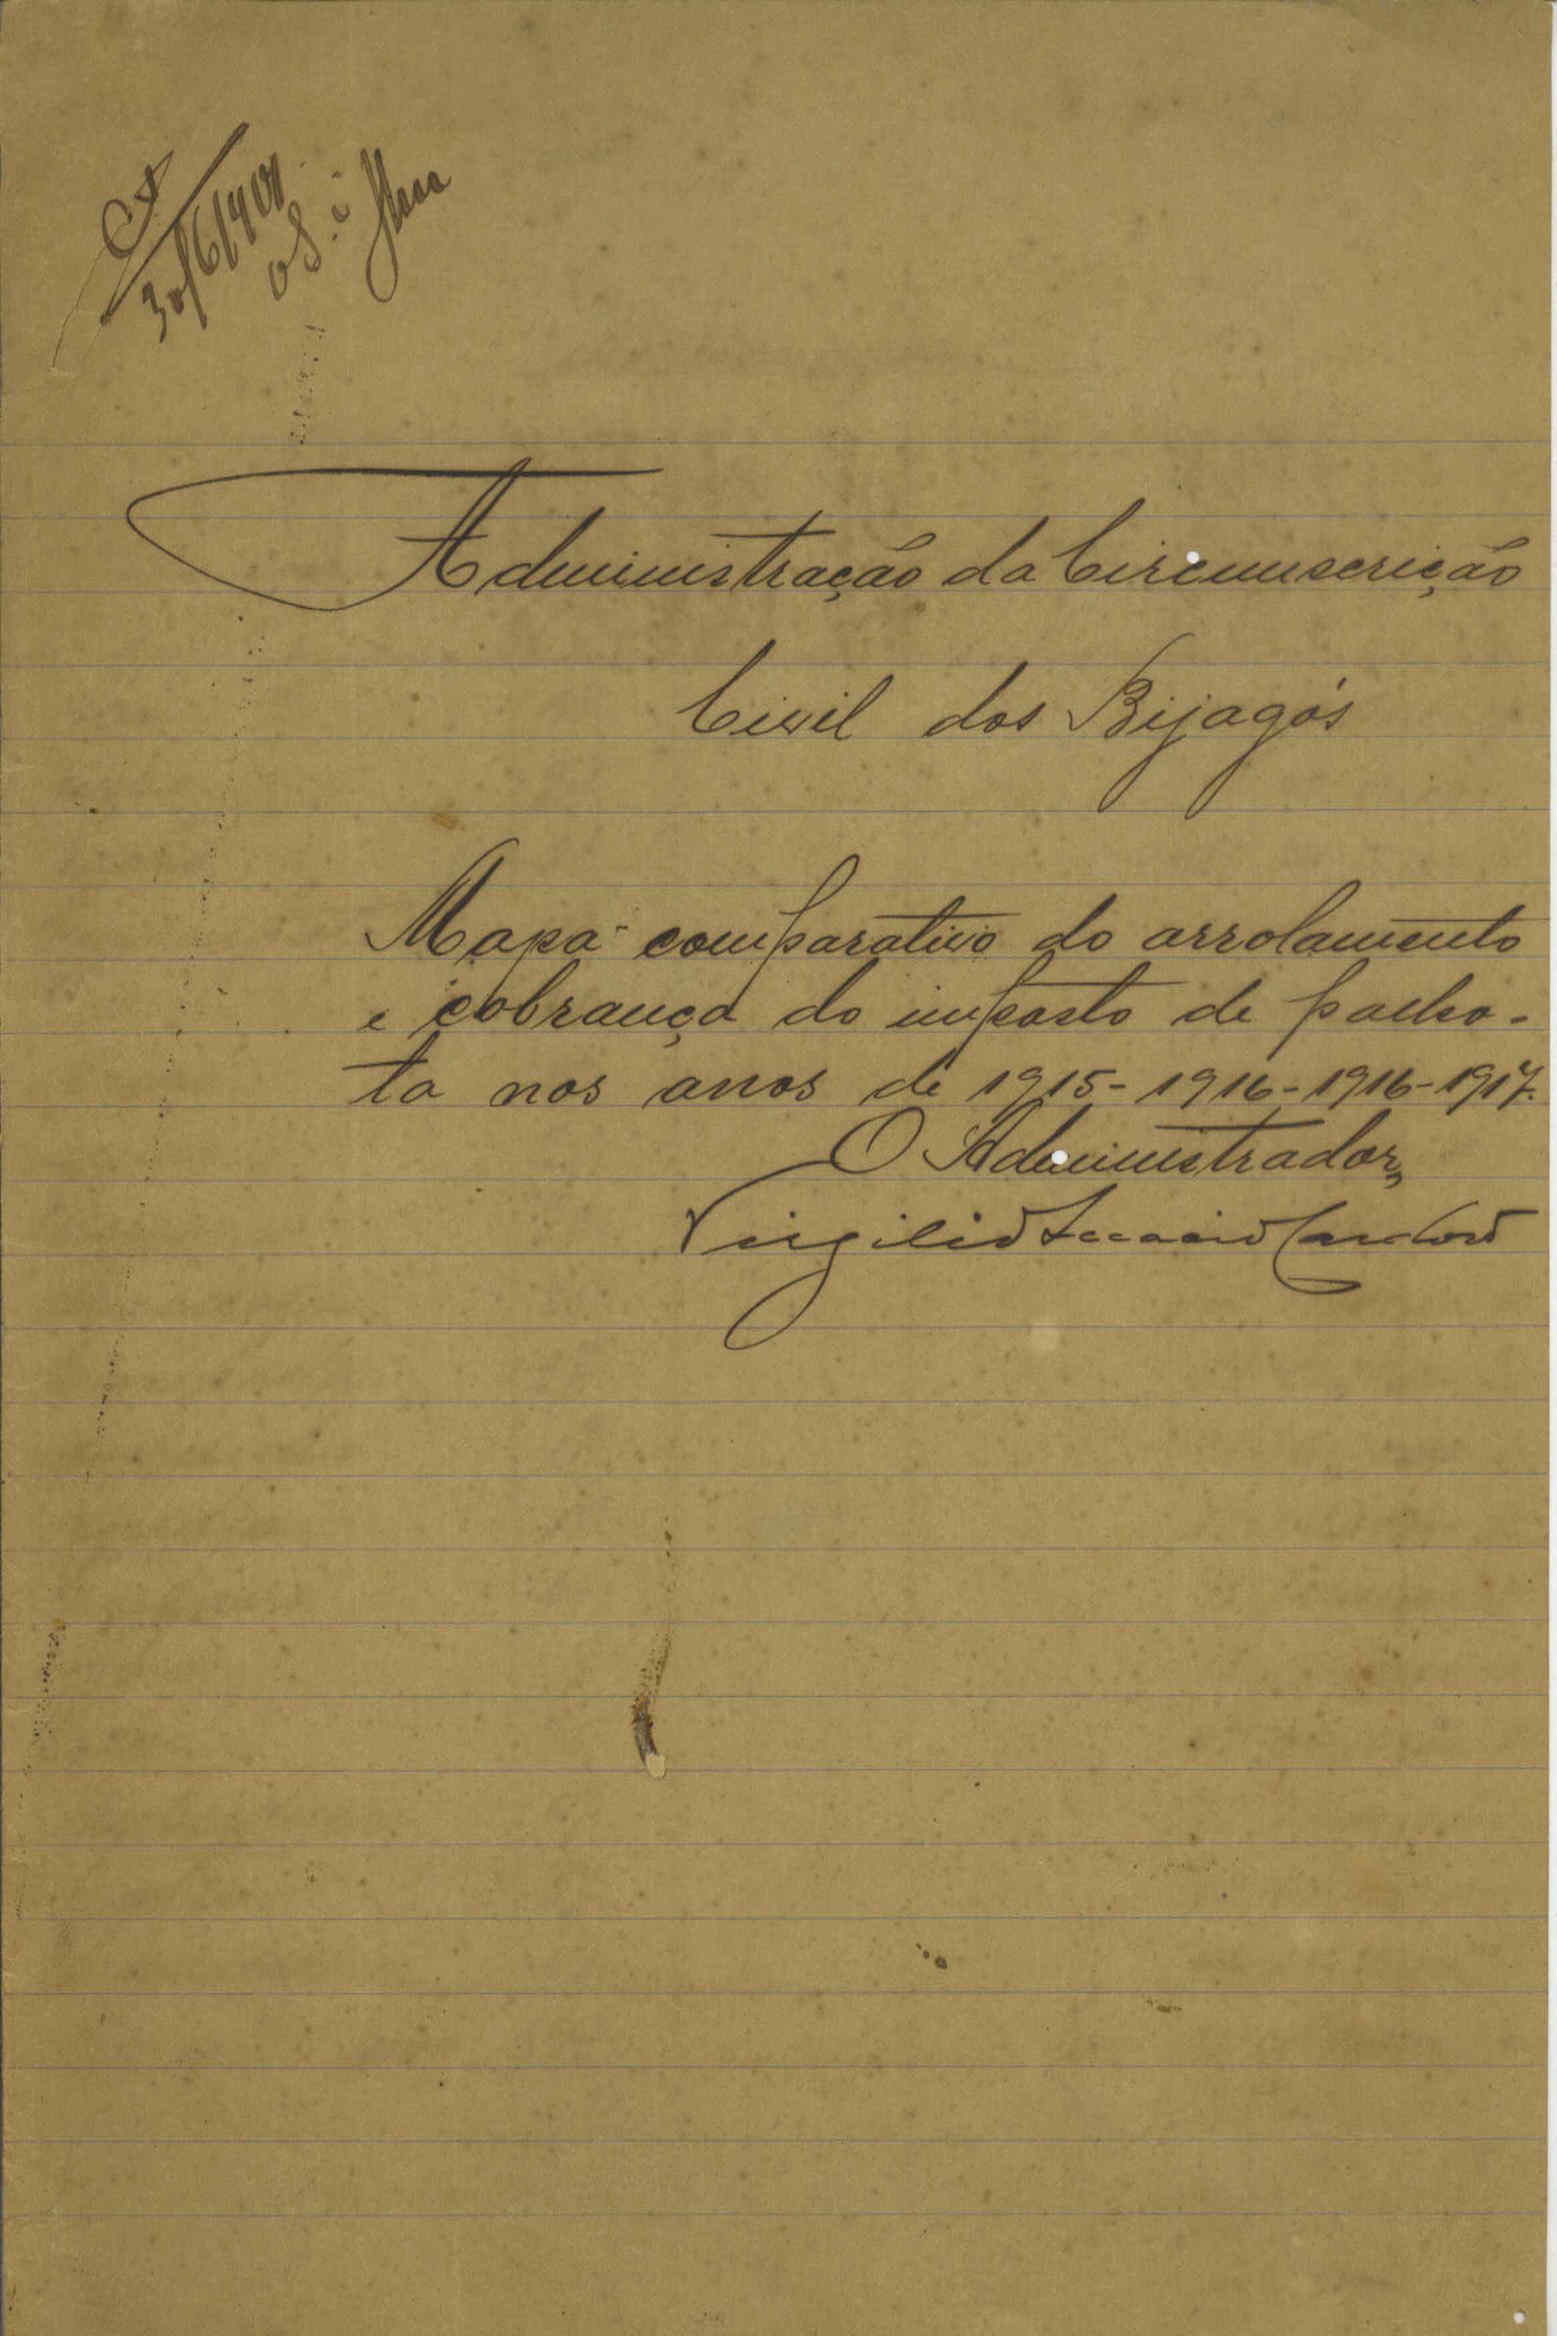 Administração da Circunscrição
Civil dos Bijagós
Mapa comparativo do arrolamento
e cobrança do imposto de palho-
ta nos anos de 1915-1916-1916-1917.
O Administrador,
Virgilio